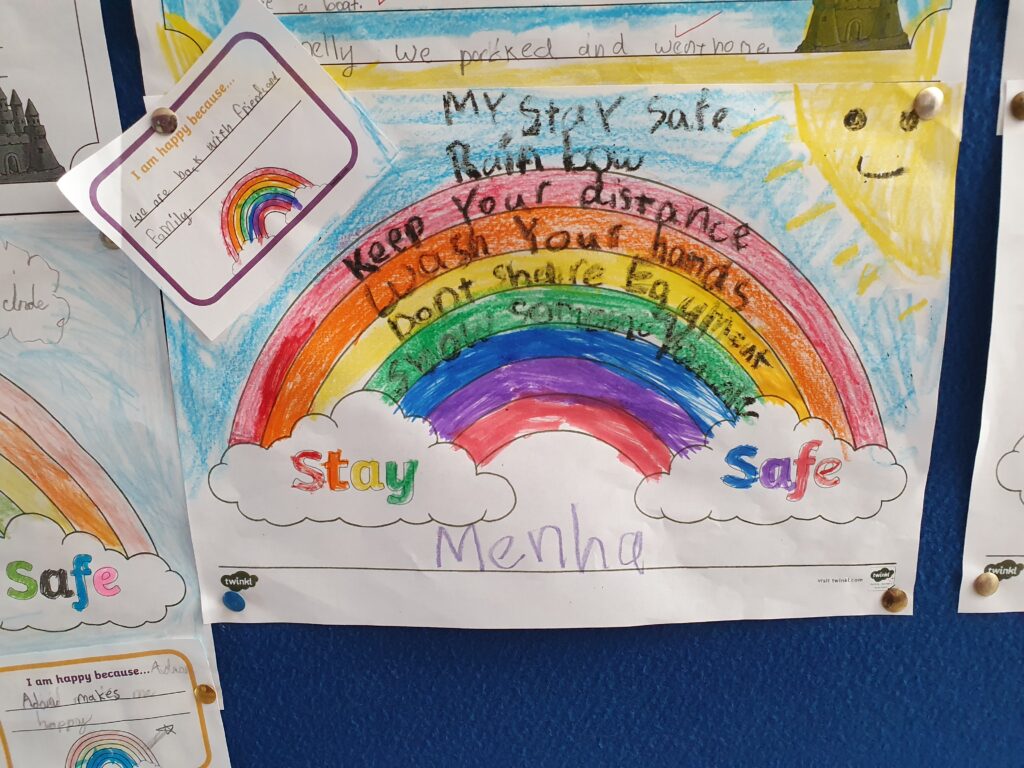 a boat.
we packed and went home.
I am happy because...
we are back with friend and
family.
My Stay Safe
Rainbow
Keep Your distance
Wash Your hands
Dont share Equment
Show someone
Stay
Safe
Menha
twinkl
visit twinkl.com
twinkl
Safe
I am happy because...
Adam makes me
happy
twinkl